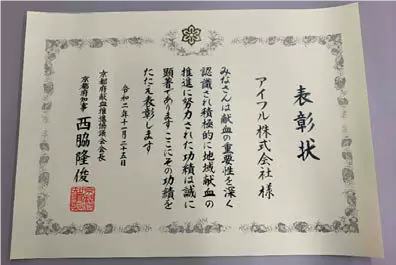 表彰状
アイフル株式会社 様
みなさんは献血の重要性を深く
認識され積極的に地域献血の
推進に努力された功績は誠に
顕著であります ここにその功績を
たたえ表彰します
令和二年十一月二十五日
京都府献血推進協議会会長
京都府知事 西脇隆俊